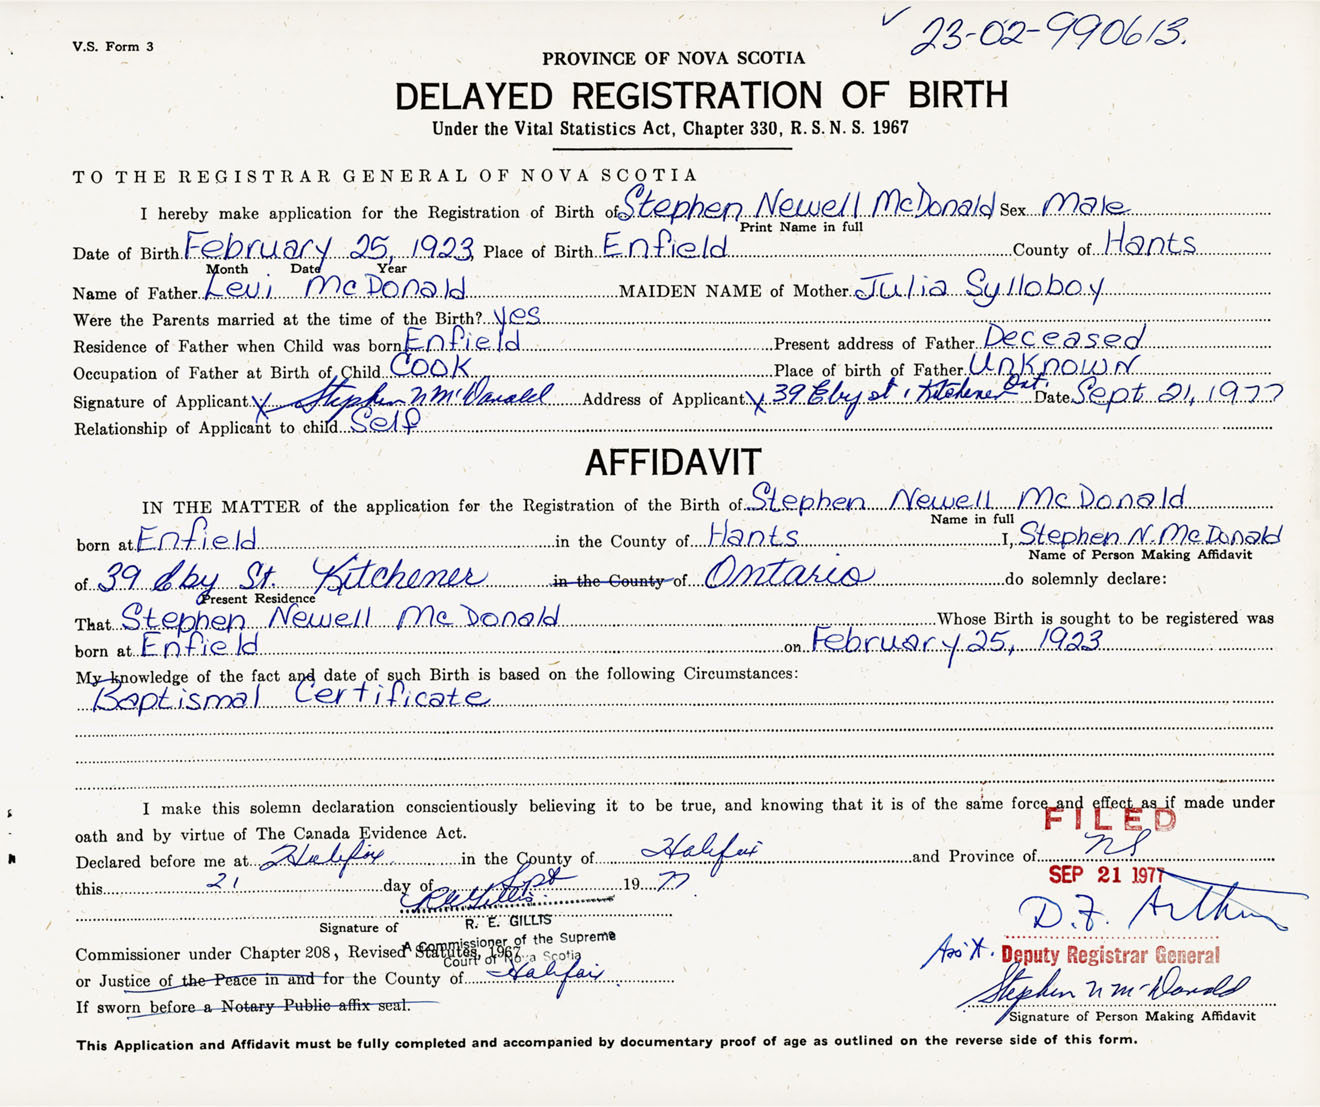 V.S. Form 3
✓ 23-02-990613.
PROVINCE OF NOVA SCOTIA
DELAYED REGISTRATION OF BIRTH
Under the Vital Statistics Act, Chapter 330, R.S.N.S. 1967
TO THE REGISTRAR GENERAL OF NOVA SCOTIA
I hereby make application for the Registration of Birth of Stephen Newell McDonald Sex Male
Print Name in full
Date of Birth February 25, 1923 Place of Birth Enfield County of Hants
Month Date Year
Name of Father Levi McDonald MAIDEN NAME of Mother Julia Sylloboy
Were the Parents married at the time of the Birth? yes
Residence of Father when Child was born Enfield Present address of Father Deceased
Occupation of Father at Birth of Child Cook Place of birth of Father Unknown
Signature of Applicant X Stephen N McDonald Address of Applicant X 39 Eby st, Kitchener Ont. Date Sept 21, 1977
Relationship of Applicant to child Self
AFFIDAVIT
IN THE MATTER of the application for the Registration of the Birth of Stephen Newell McDonald
Name in full
born at Enfield in the County of Hants I, Stephen N. McDonald
Name of Person Making Affidavit
of 39 Eby St. Kitchener in the County of Ontario do solemnly declare:
Present Residence
That Stephen Newell McDonald Whose Birth is sought to be registered was
born at Enfield on February 25, 1923
My knowledge of the fact and date of such Birth is based on the following Circumstances:
Baptismal Certificate
I make this solemn declaration conscientiously believing it to be true, and knowing that it is of the same force and effect as if made under
oath and by virtue of The Canada Evidence Act.
FILED
Declared before me at Halifax in the County of Halifax and Province of NS
this 21 day of Sept 1977
SEP 21 1977
R E Gillis
D.F. Arthur
Signature of R. E. GILLIS
A Commissioner of the Supreme
Court of Nova Scotia
Commissioner under Chapter 208, Revised Statutes, 1967
Ass't. Deputy Registrar General
or Justice of the Peace in and for the County of Halifax
Stephen N McDonald
If sworn before a Notary Public affix seal.
Signature of Person Making Affidavit
This Application and Affidavit must be fully completed and accompanied by documentary proof of age as outlined on the reverse side of this form.